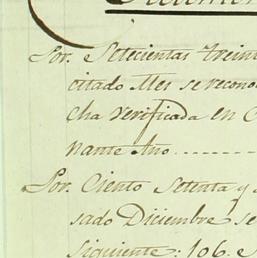 Por. Setecientas trein
citado Mes se recono
cha verificada en C
nante Año
Por. Ciento Setenta y
sado Diciembre se
siguiente: 106. e